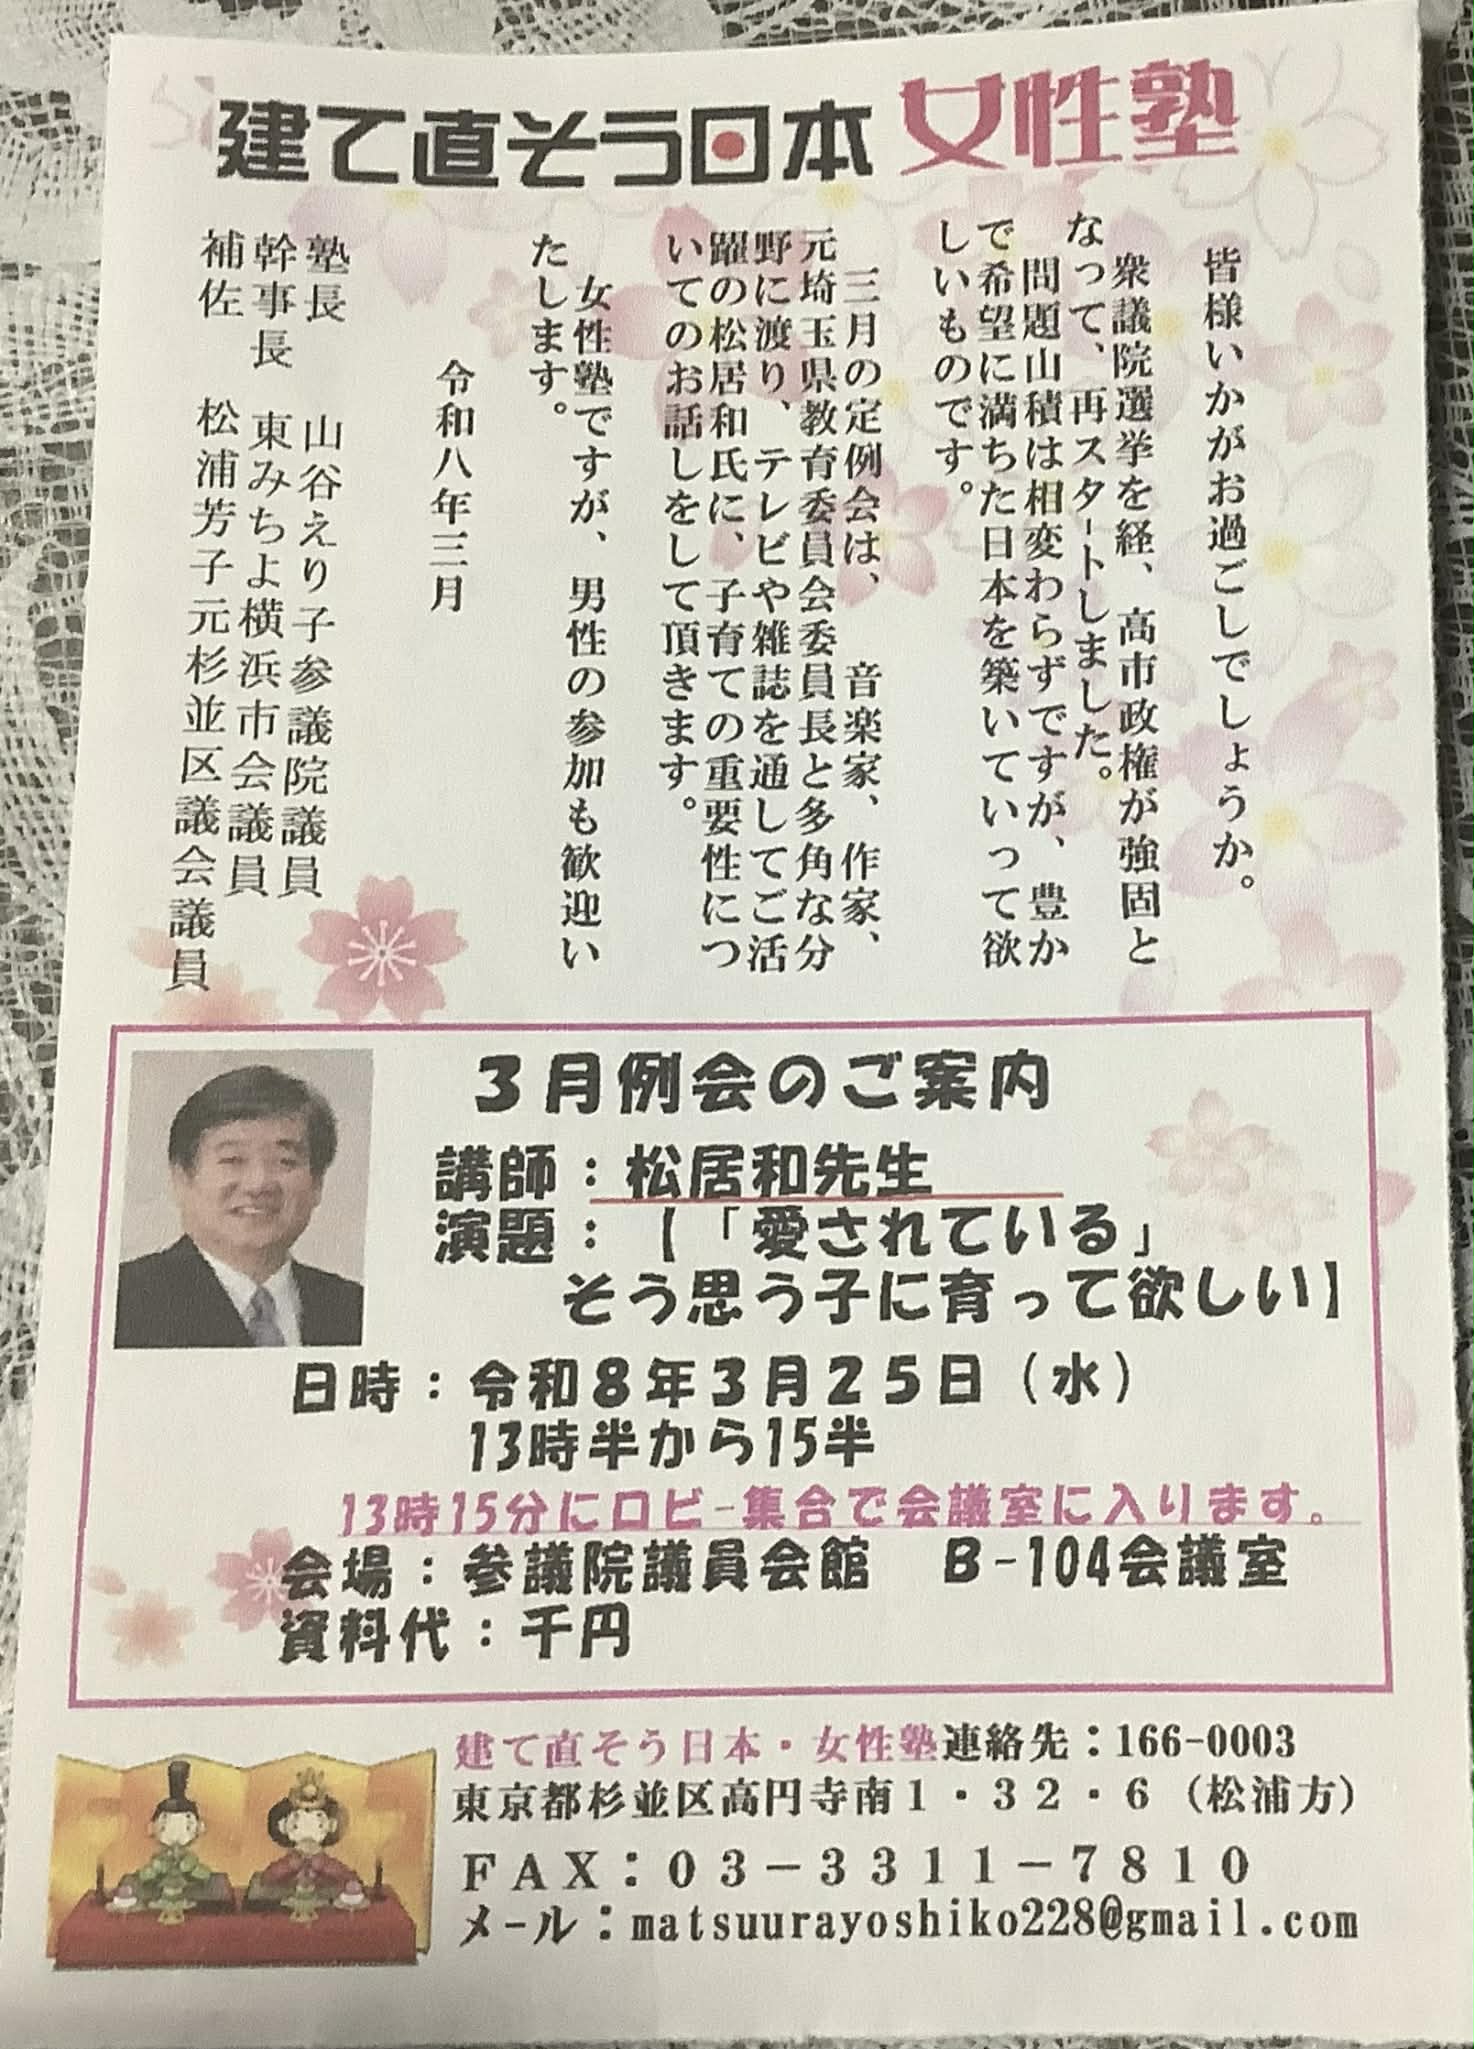 建て直そう日本 女性塾
皆様いかがお過ごしでしょうか。
衆議院選挙を経、高市政権が強固と
なって、再スタートしました。
問題山積は相変わらずですが、豊か
で希望に満ちた日本を築いていって欲
しいものです。
三月の定例会は、音楽家、作家、
元埼玉県教育委員会委員長と多角な分
野に渡り、テレビや雑誌を通してご活
躍の松居和氏に、子育ての重要性につ
いてのお話しをして頂きます。
女性塾ですが、男性の参加も歓迎い
たします。
令和八年三月
塾長 山谷えり子参議院議員
幹事長 東みちよ横浜市会議員
補佐 松浦芳子元杉並区議会議員
3月例会のご案内
講師:松居和先生
演題:【「愛されている」
そう思う子に育って欲しい】
日時:令和8年3月25日(水)
13時半から15半
13時15分にロビー集合で会議室に入ります。
会場:参議院議員会館 B-104会議室
資料代:千円
建て直そう日本・女性塾連絡先:166-0003
東京都杉並区高円寺南1・32・6(松浦方)
FAX:03-3311-7810
メール:matsuurayoshiko228@gmail.com